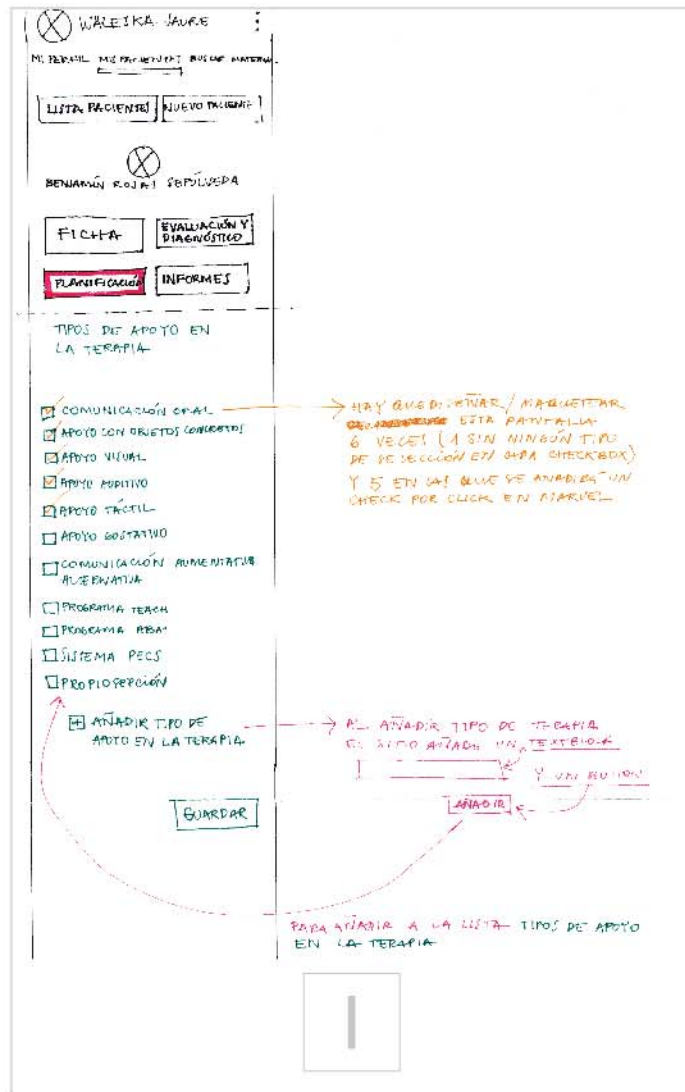 WALESKA JAURE
MI PERFIL MIS PACIENTES BUSCAR MATERIAL
LISTA PACIENTES NUEVO PACIENTE
BENJAMÍN ROJAS SEPÚLVEDA
FICHA
EVALUACIÓN Y
DIAGNÓSTICO
PLANIFICACIÓN
INFORMES
TIPOS DE APOYO EN
LA TERAPIA
COMUNICACIÓN ORAL
APOYO CON OBJETOS CONCRETOS
APOYO VISUAL
APOYO AUDITIVO
APOYO TÁCTIL
APOYO GUSTATIVO
COMUNICACIÓN AUMENTATIVA
ALTERNATIVA
PROGRAMA TEACH
PROGRAMA ABA
SISTEMA PECS
PROPIOCEPCIÓN
AÑADIR TIPO DE
APOYO EN LA TERAPIA
GUARDAR
HAY QUE DISEÑAR / MAQUETEAR
ESTA PANTALLA
6 VECES (1 SIN NINGÚN TIPO
DE SELECCIÓN EN CADA CHECKBOX)
Y 5 EN LAS QUE SE AÑADIRÁ UN
CHECK POR CLICK EN MARVEL
AL AÑADIR TIPO DE TERAPIA
EL SITIO AÑADE UN TEXTBLOCK
Y UN BUTTON
AÑADIR
PARA AÑADIR A LA LISTA TIPOS DE APOYO
EN LA TERAPIA